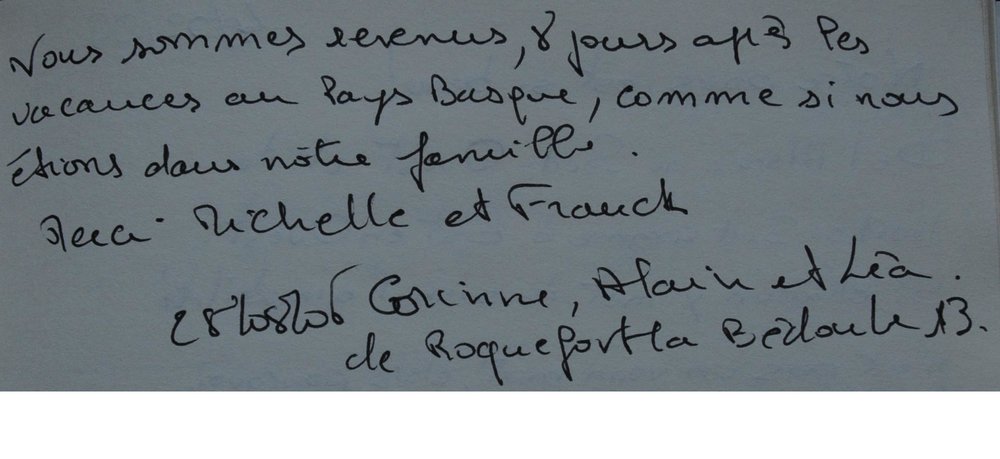 Nous sommes revenus, 8 jours après les
vacances au Pays Basque, comme si nous
étions dans nôtre famille.
Merci Michelle et Franck
28/08/06 Corinne, Alain et Léa.
de Roquefort la Bédoule 13.